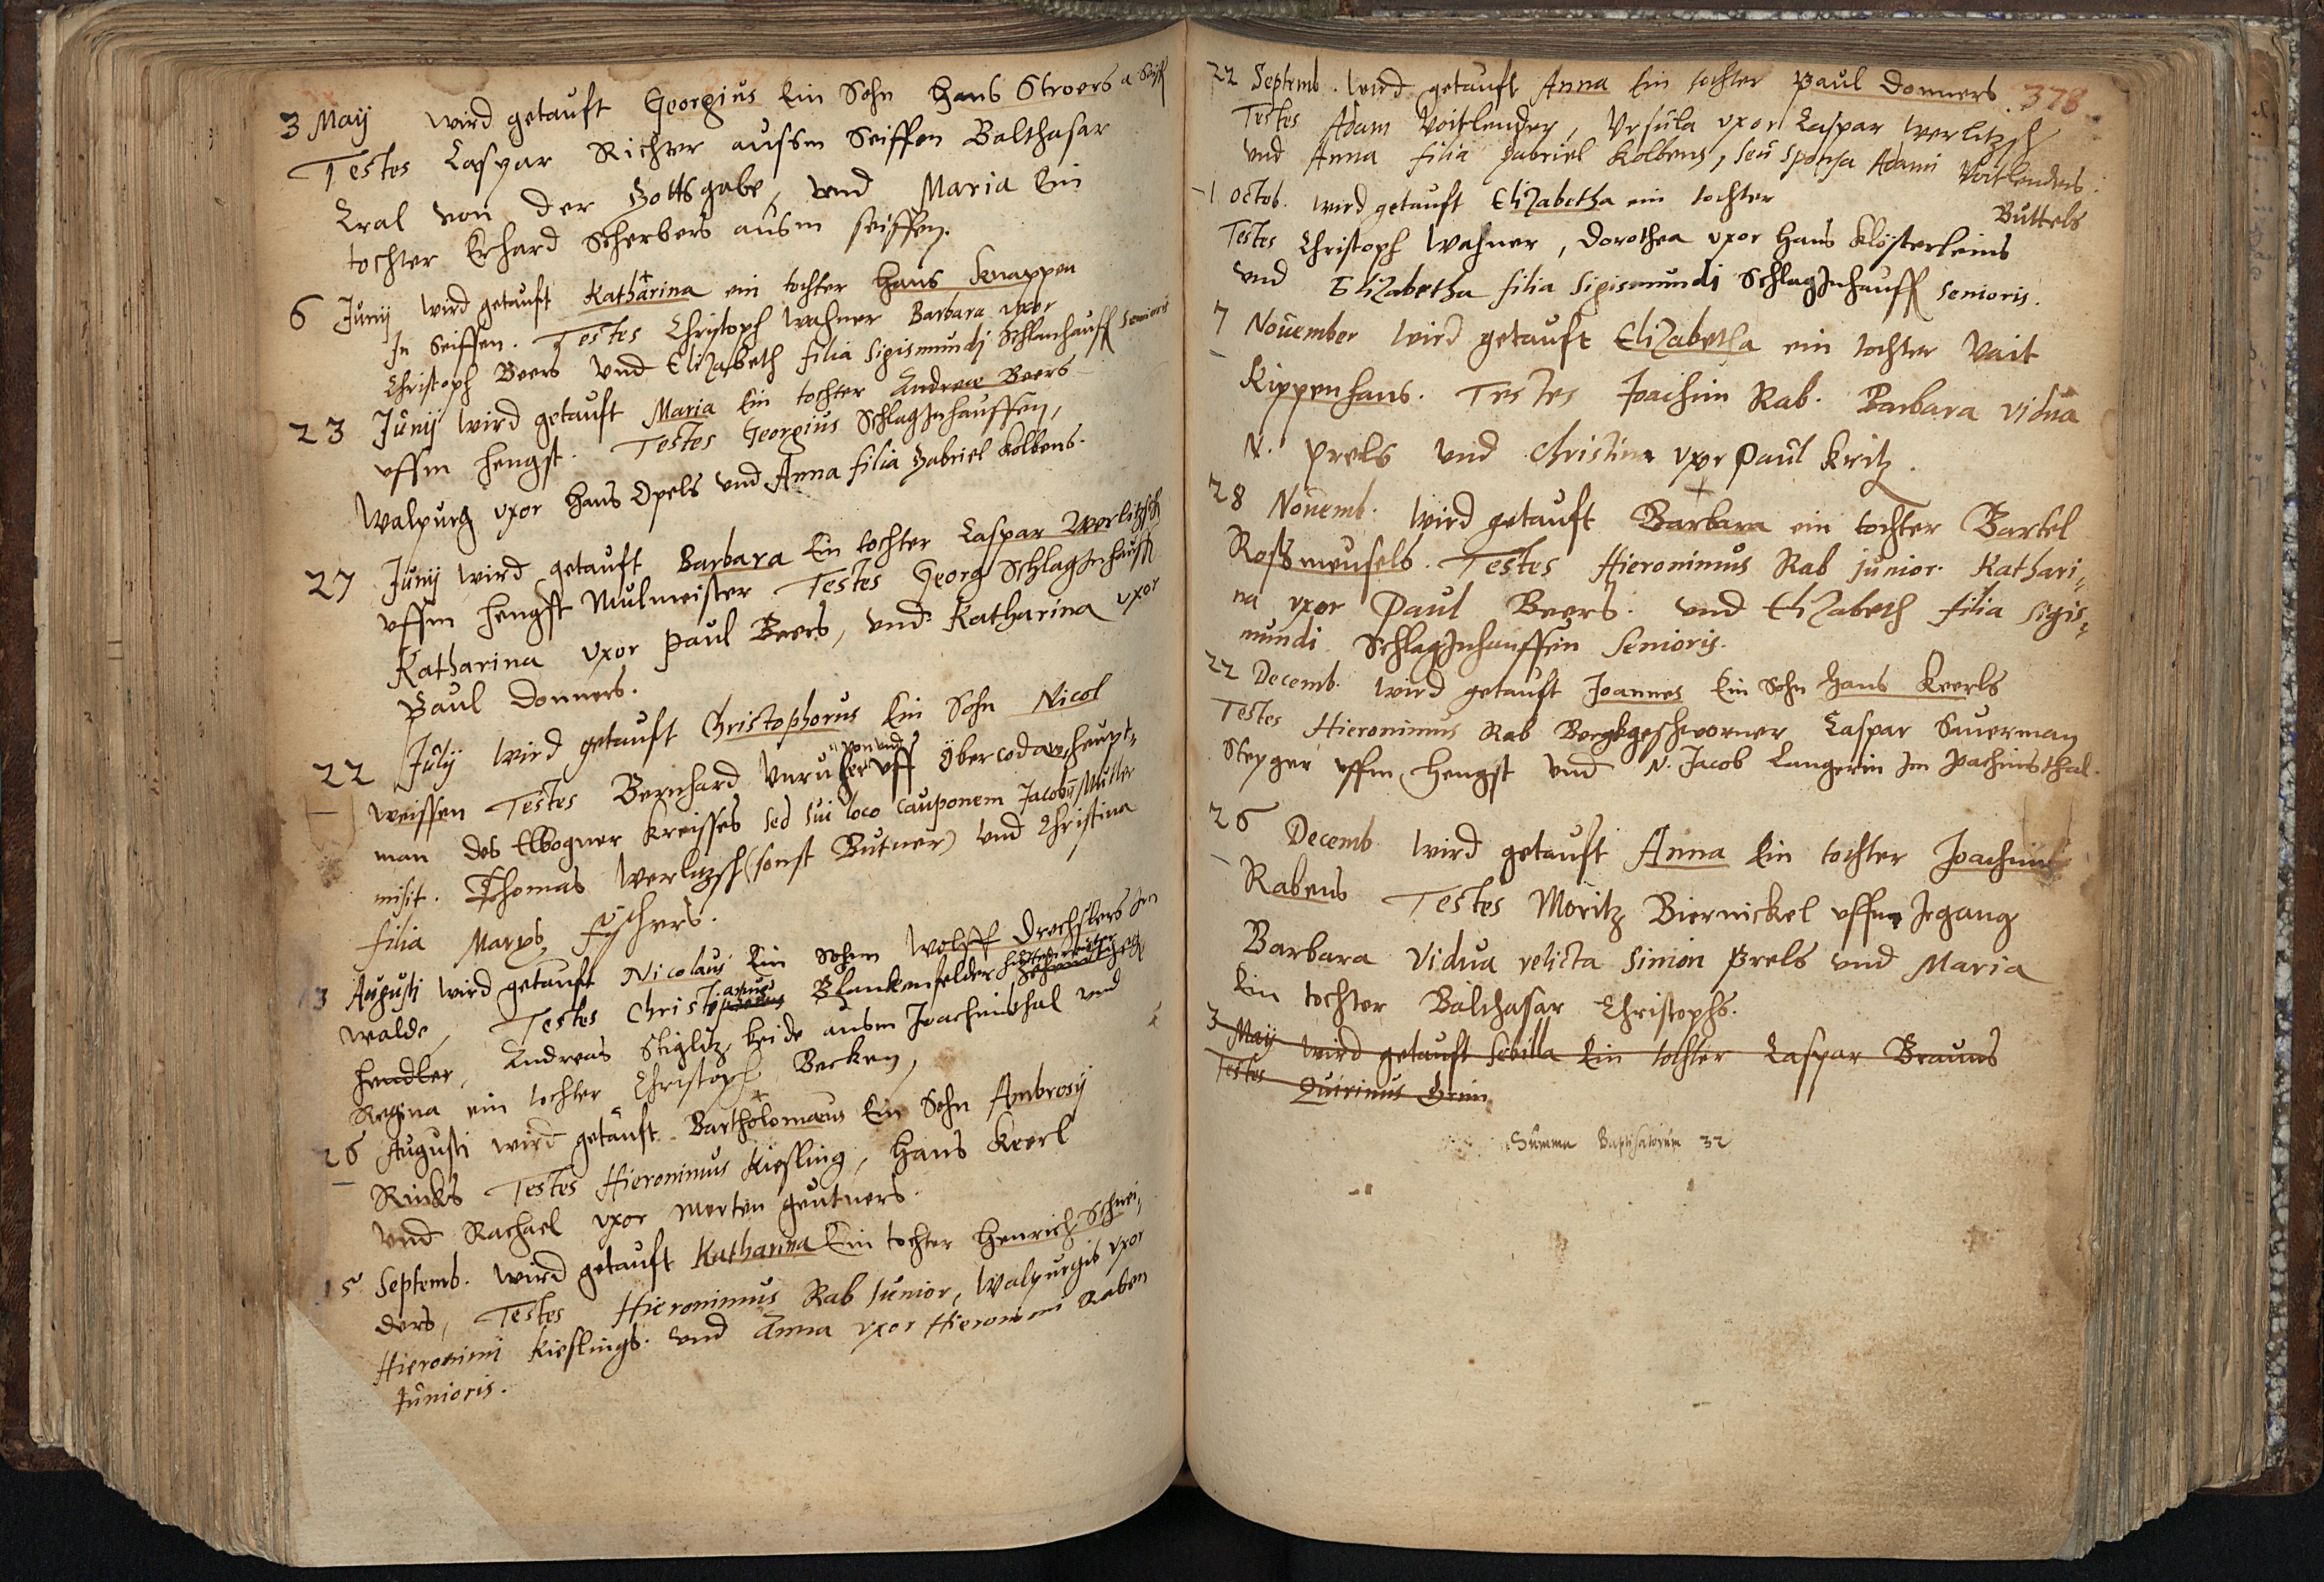 3 May wird getauft Georgius Ein Sohn Hans Stroers a Seiff
Testes Caspar Richter aussm Seiffen Balthasar
Kral von der Gottsgabe, vnd Maria Ein
tochter Erhard Scherbers ausm seiffen.
6 Junij wird getauft Katharina ein tochter Hans Knappen
In Seiffen. Testes Christoph Wahner Barbara vxor
Christoph Beers vnd Elizabeth filia Sigismundj Schlanhauff Senioris
23 Junij wird getauft Maria Ein tochter Andreae Beers
vffm Hengst. Testes Georgius SchlagInhauffen,
Walpurg vxor Hans Opels vnd Anna filia Gabriel Kolbens.
27 Junij wird getauft Barbara Ein tochter Caspar Werlitzsch
vffm Hengst Mulmeister Testes Georg SchlagInhauff
Katharina vxor Paul Beers, vnd Katharina vxor
Paul Donners.
22 Julij wird getauft Christophorus Ein Sohn Nicol
Weissen Testes Bernhard Vnruher von vnd vff Obercodaw heupt-
man des Elbogner Kreisses sed sui loco cauponem Jacobum Muller
misit. Thomas Werlitzsch (sonst Butner) vnd Christina
filia Marxs Fischers.
13 Augusti wird getauft Nicolaus Ein Sohn Wolff Drechslers Im
Walde, Testes Christianus Blankenfelder
Hendler, Andreas Stiglitz, beide ausm Joachimsthal vnd
Regina ein tochter Christoph Becken,
26 Augusti wird getauft Bartholomaeus Ein Sohn Ambrosij
Rincks Testes Hieronimus Kiesling, Hans Keerl
vnd Rachael vxor Merten Geutners.
15 Septemb. wird getauft Katharina Ein tochter Henrich Schnei-
ders, Testes Hieronimus Rab Junior, Walpurgis vxor
Hieronimi Kieslings. vnd Anna vxor Hieronimi Raben
Junioris.
378.
22 Septemb. wird getauft Anna Ein tochter Paul Donners
Testes Adam Voitlender, Vrsula vxor Caspar Werlitzsch
vnd Anna filia Gabriel Kolbens, seu sponsa Adami Voitlenders.
1 Octob. wird getauft Elizabetha ein tochter Buttels
Testes Christoph Wahner, Dorothea vxor Hans Klösterleins
vnd Elizabetha filia Sigismundi SchlagInhauff Senioris.
7 Nouember wird getauft Elizabetha ein tochter Vait
Kippenhans. Testes Joachim Rab. Barbara vidua
N. Prels vnd Christina vxor Paul Kritz.
28 Nouemb. wird getauft Barbara ein tochter Bartel
Rossmeusels. Testes Hieronimus Rab junior. Kathari-
na vxor Paul Beers. vnd Elizabeth filia Sigis-
mundi SchlagInhauffen Senioris.
22 Decemb. wird getauft Joannes Ein Sohn Hans Keerls
Testes Hieronimus Rab Bergkgeschworner Caspar Sauerman
Steyger vffm Hengst vnd N. Jacob Langerin Im Joachimsthal.
26 Decemb. wird getauft Anna Ein tochter Joachim
Rabens Testes Moritz Biernickel vffm Irgang
Barbara Vidua relicta Simon Prels vnd Maria
Ein tochter Balthasar Christophs.
3 May wird getauft Sebilla Ein tochter Caspar Brauns
Testes Quirinus Grim
Summa Baptisatorum 32